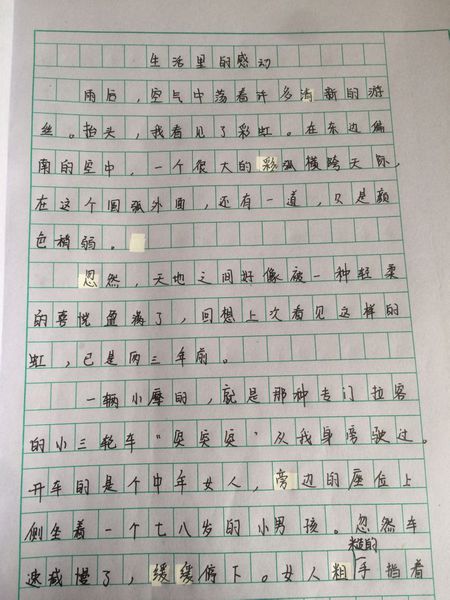 生活里的感动
雨后，空气中荡着许多清新的游
丝。抬头，我看见了彩虹。在东边偏
南的空中，一个很大的彩弧横跨天际，
在这个圆弧外面，还有一道，只是颜
色稍弱。
忽然，天地之间好像被一种轻柔
的喜悦盈满了，回想上次看见这样的
虹，已是两三年前。
一辆小摩的，就是那种专门拉客
的小三轮车“突突突”从我身旁驶过。
开车的是个中年女人，旁边的座位上
侧坐着一个七八岁的小男孩。忽然车
糙的
速减慢了，缓缓停下。女人粗手指着